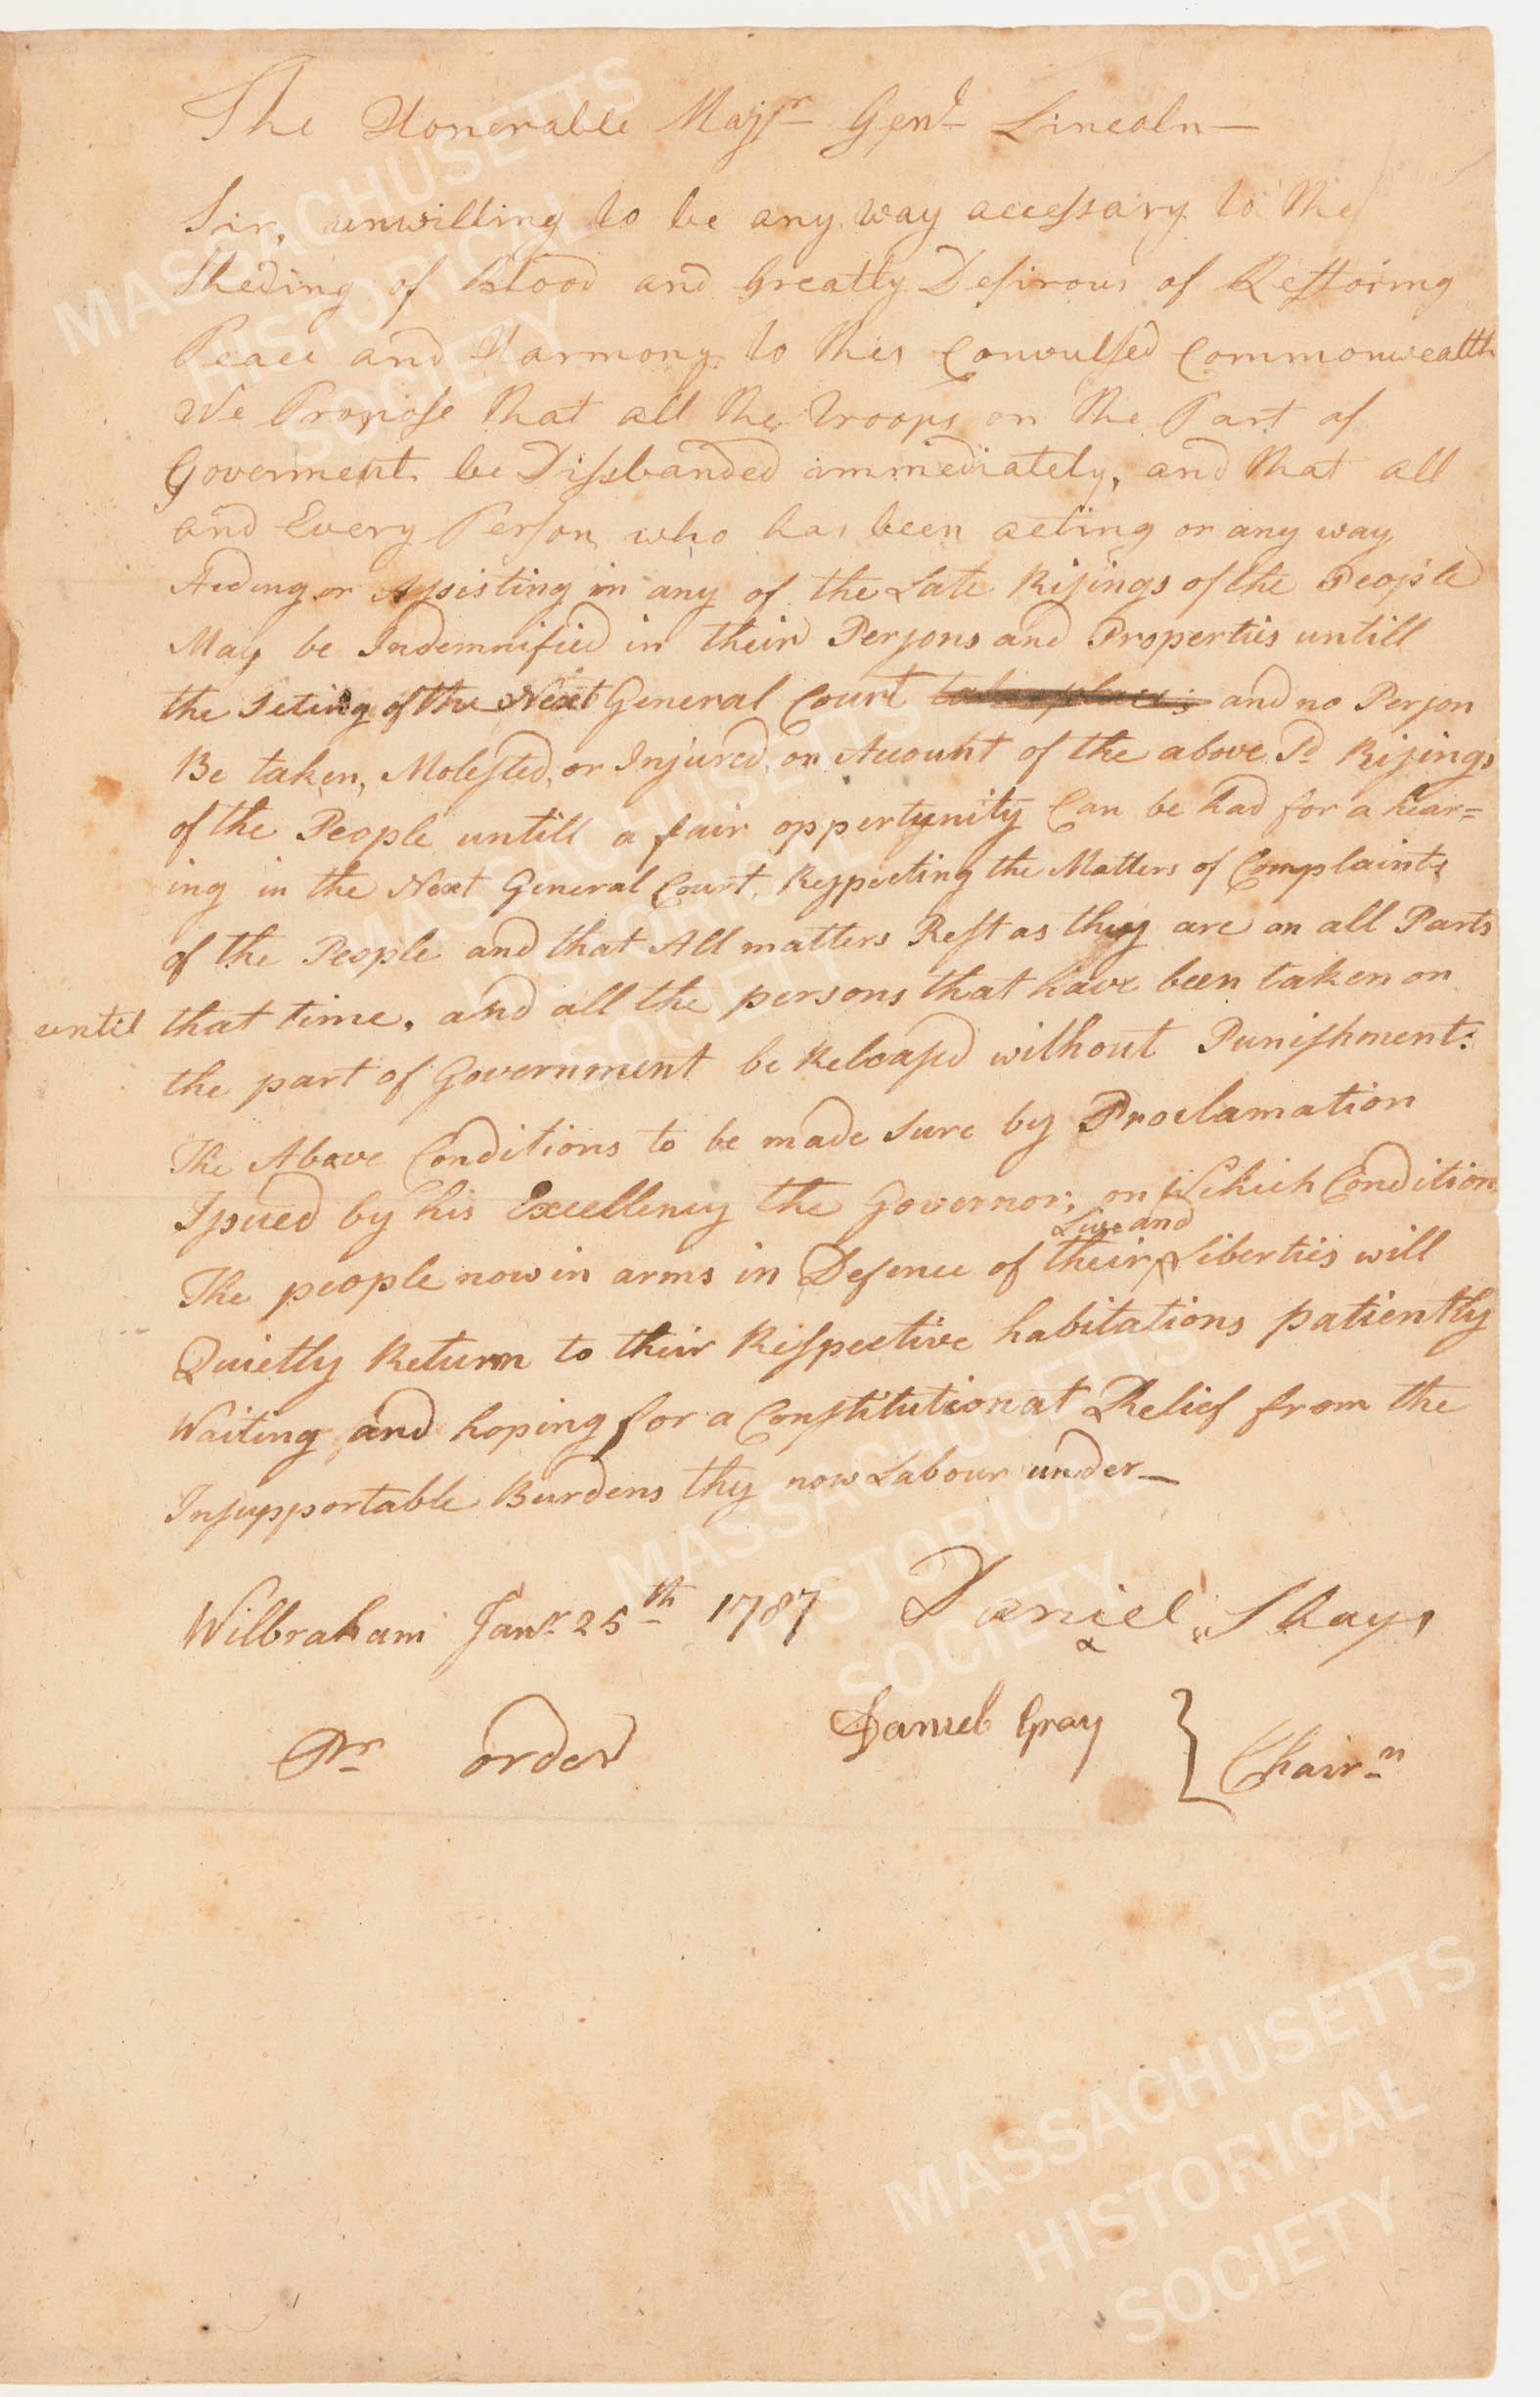 The Honerable Majr Genl Lincoln—
Sir, unwilling to be any way accessary to the
Sheding of Blood and Greatly Desirous of Restoring
Peace and Harmony to this Convulsed Commonwealth
We Propose that all the troops on the Part of
Goverment be Dissbanded immediately, and that all
and Every Person who has been acting or any way
Aeding or Assisting in any of the Late Risings of the People
May be Indemnified in their Persons and Properties untill
the Seting of the Next General Court and no Person
Be taken, Molested, or Injured, on Account of the above Sd Risings
of the People untill a fair oppertunity Can be had for a hear=
ing in the Next General Court, Respecting the Matters of Complaints
of the People and that All matters Rest as they are on all Parts
until that time. and all the persons that have been taken on
the part of Government be Releasd without Punishment:
The Above Conditions to be made Sure by Proclamation
Issued by his Excellency the Governor; on Which Condition
Live and
The people now in arms in Defence of their Liberties will
Quietly Return to their Respective habitations patiently
Waiting and hoping for a Constitutionat Relief from the
Insupportable Burdens thy now Labour under—
Wilbraham Janr 25th 1787 Daniel Shays
Pr order Daniel Gray } Chairn
MASSACHUSETTS
HISTORICAL
SOCIETY
MASSACHUSETTS
HISTORICAL
SOCIETY
MASSACHUSETTS
HISTORICAL
SOCIETY
MASSACHUSETTS
HISTORICAL
SOCIETY